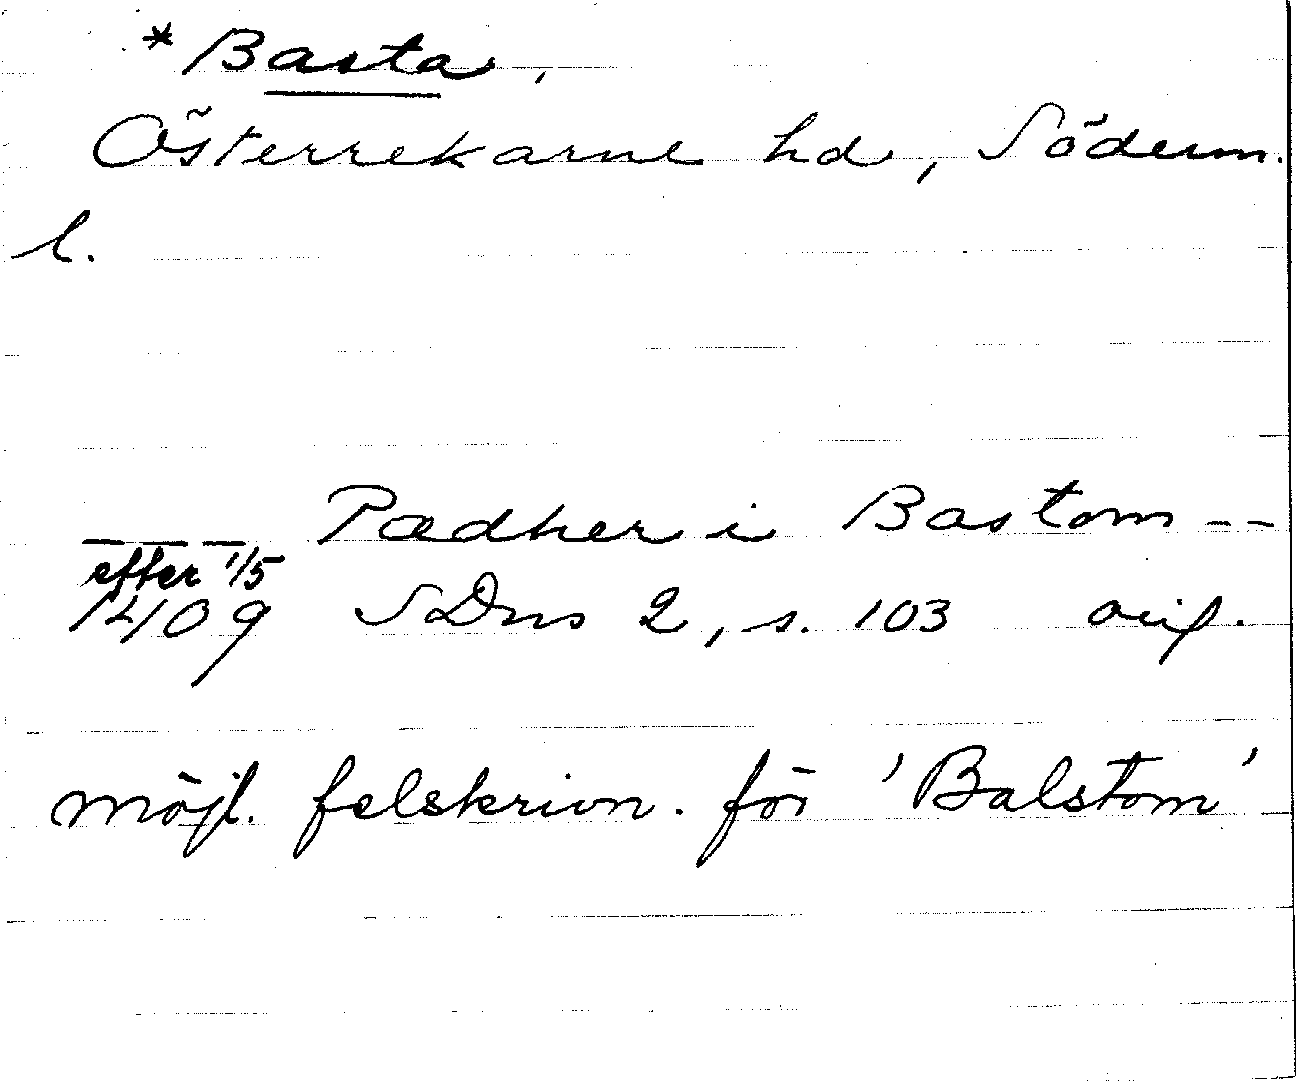 *Basta,
Österrekarne hd, Söderm.
l.
— — Pædher i Bastom --
efter 1/5
1409 SDns 2, s. 103 orig.
möjl. felskrivn. för 'Balstom'